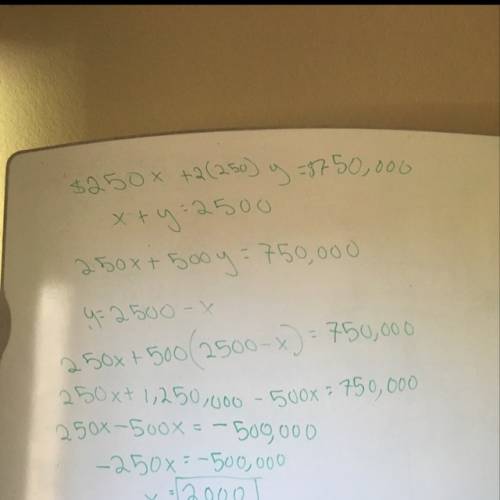 $250x + 2(250) y = $750,000
x + y = 2500
250x + 500y = 750,000
y = 2500 - x
250x + 500(2500 - x) = 750,000
250x + 1,250,000 - 500x = 750,000
250x - 500x = -500,000
-250x = -500,000
x = 2000